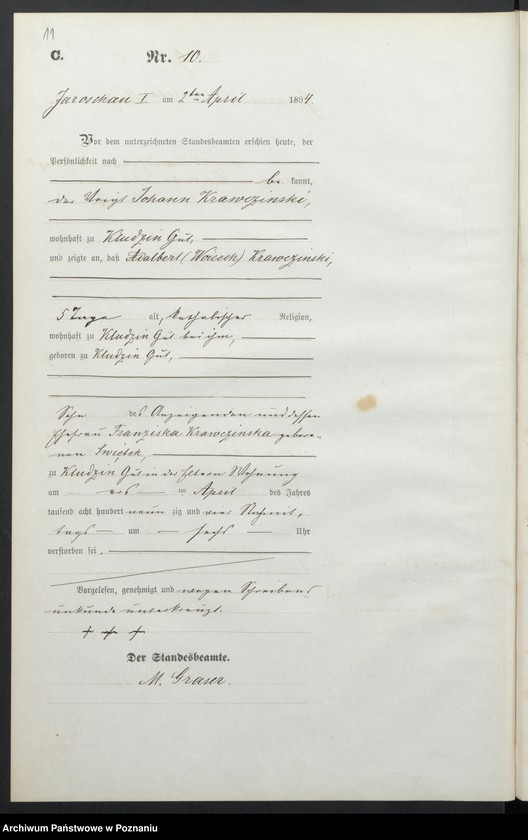 11
C.
Nr. 10.
Jaroschau I am 2ten April 1894.
Vor dem unterzeichneten Standesbeamten erschien heute, der
Persönlichkeit nach
be kannt,
der Voigt Johann Krawczinski,
wohnhaft zu Kludzin Gut,
und zeigte an, daß Adalbert (Woiech) Krawczinski,
5 Tage alt, katholischer Religion,
wohnhaft zu Kludzin Gut bei ihm,
geboren zu Kludzin Gut,
Sohn des Anzeigenden und dessen
Ehefrau Franziska Krawczinska gebore-
nen Swietek,
zu Kludzin Gut in der Eltern Wohnung
am ers im April des Jahres
tausend acht hundert neun zig und vier Nachmit-
tags um sechs Uhr
verstorben sei.
Vorgelesen, genehmigt und wegen Schreibens
unkunde unterkreuzt.
+ + +
Der Standesbeamte.
M. Graser.
Archiwum Państwowe w Poznaniu